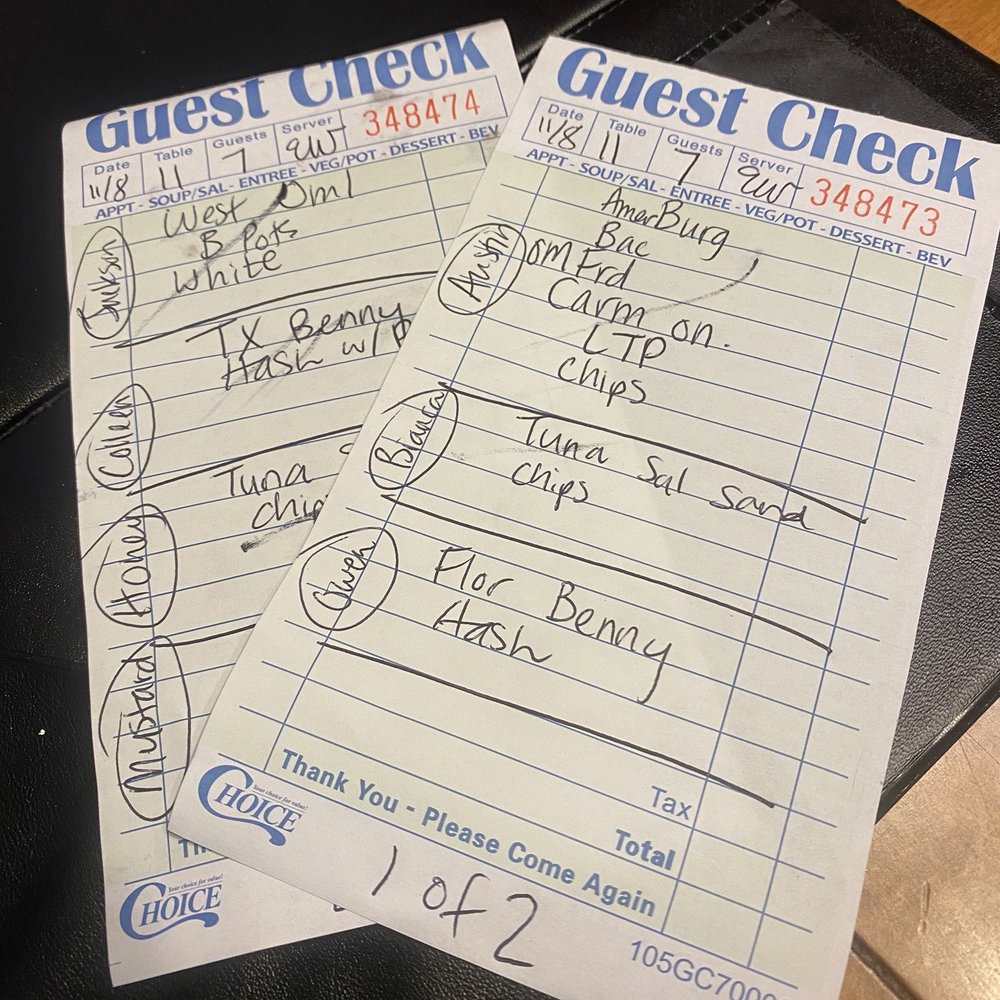 Guest Check
Date Table Guests Server 348474
11/8 11 7 qw
APPT - SOUP/SAL - ENTREE - VEG/POT - DESSERT - BEV
West Oml
B Pots
White
Jackson
TX Benny
Hash w/
Colleen
Tuna
Chip
Honey
Mustard
Your choice for value!
CHOICE
Guest Check
Date Table Guests Server 348473
11/8 11 7 qw
APPT - SOUP/SAL - ENTREE - VEG/POT - DESSERT - BEV
Amer Burg
Bac
Austin
om Frd
Carm on.
LTP
Chips
Bianca
Tuna Sal Sand
Chips
Owen
Flor Benny
Hash
Tax
Total
Thank You - Please Come Again
Your choice for value!
CHOICE
1 of 2
105GC700